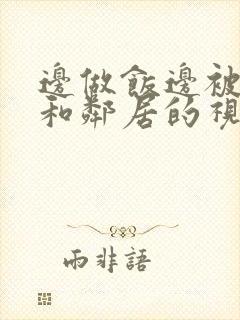 邊做飯邊被
和鄰居的視
雨非語